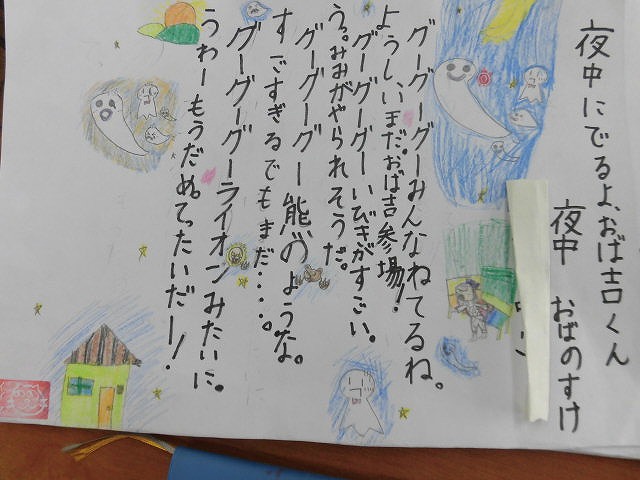 夜中にでるよ、おば吉くん
夜中　おばのすけ
グーグーグーみんなねてるね。
ようしいまだ。おば吉参場！
グーグーグーいびきがすごい。
う。みみがやられそうだ。
グーグーグー熊のような。
すごすぎるでもまだ・・・・。
グーグーグーライオンみたいに。
うわーもうだめ。てったいだー！